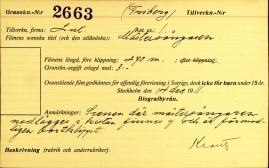 Granskn.-N:r 2663 (Friberg) Tillverkn.-N:r
Tillverkn. firma: Lux
Filmens svenska titel (och den utländska): Mästersångaren
Filmens längd, före klippning: 270 m. ; efter klippning:
Gransknings-avgift erlagd med: 3.-
Ovanstående film godkännes för offentlig förevisning i Sverige, dock icke för barn under 15 år.
Stockholm den 14 dec. 1911
Biografbyrån.
Anmärkningar: Scenen där mästersångaren
nedlägges i kistan finnes ej och är förmod-
ligen bortklippt.
Beskrivning (rubrik och underrubriker):